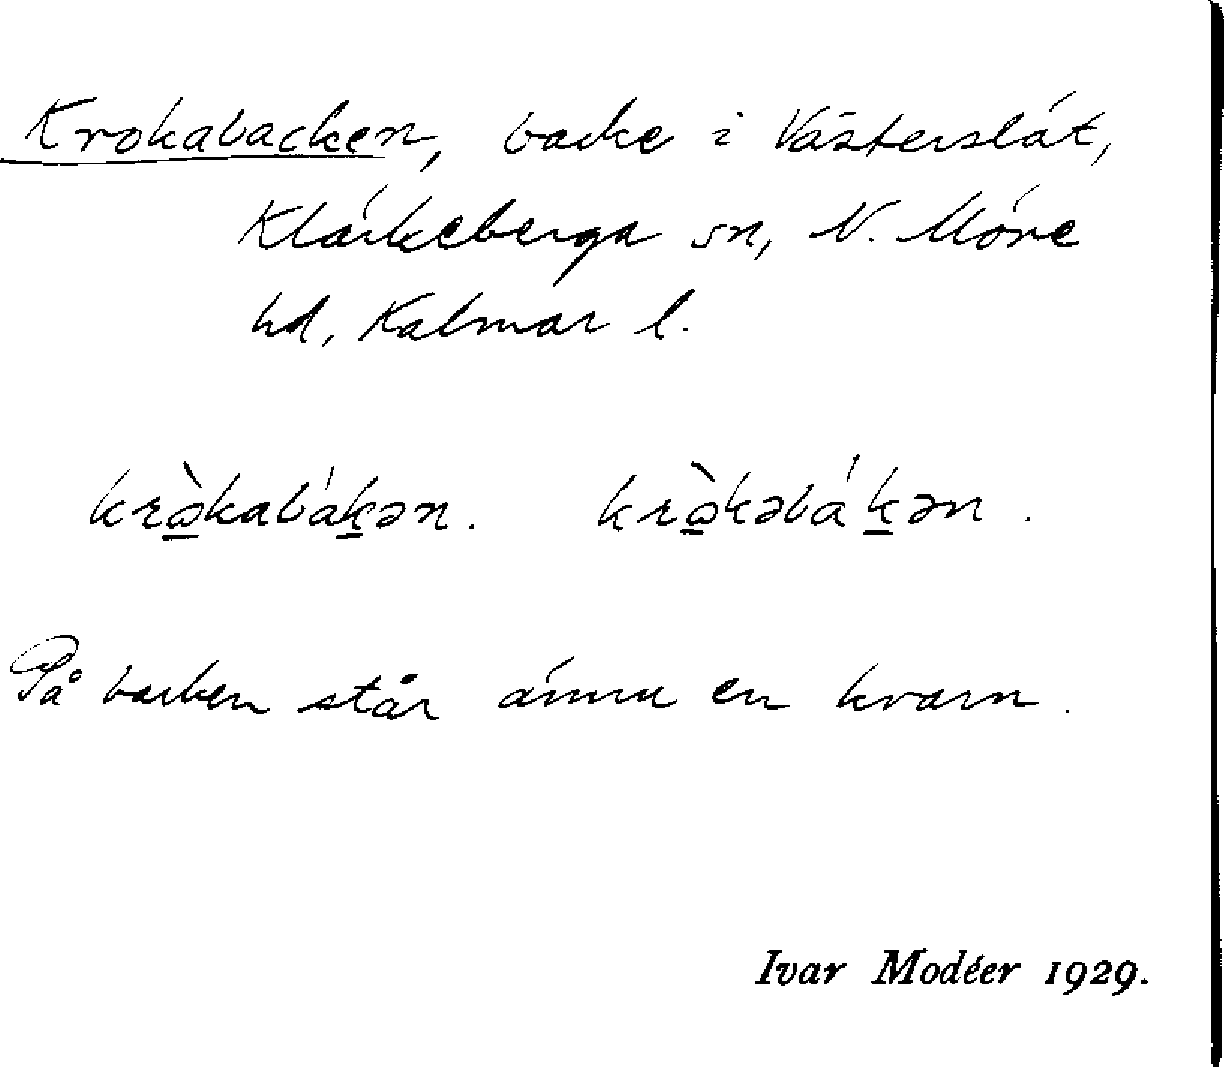 Krokabacken, backe i Västerslät,
Kläckeberga sn, N. Möre
hd, Kalmar l.
krɷ̀kabák̠ən. krɷ̀kəbák̠ən.
På backen står ännu en kvarn.
Ivar Modéer 1929.